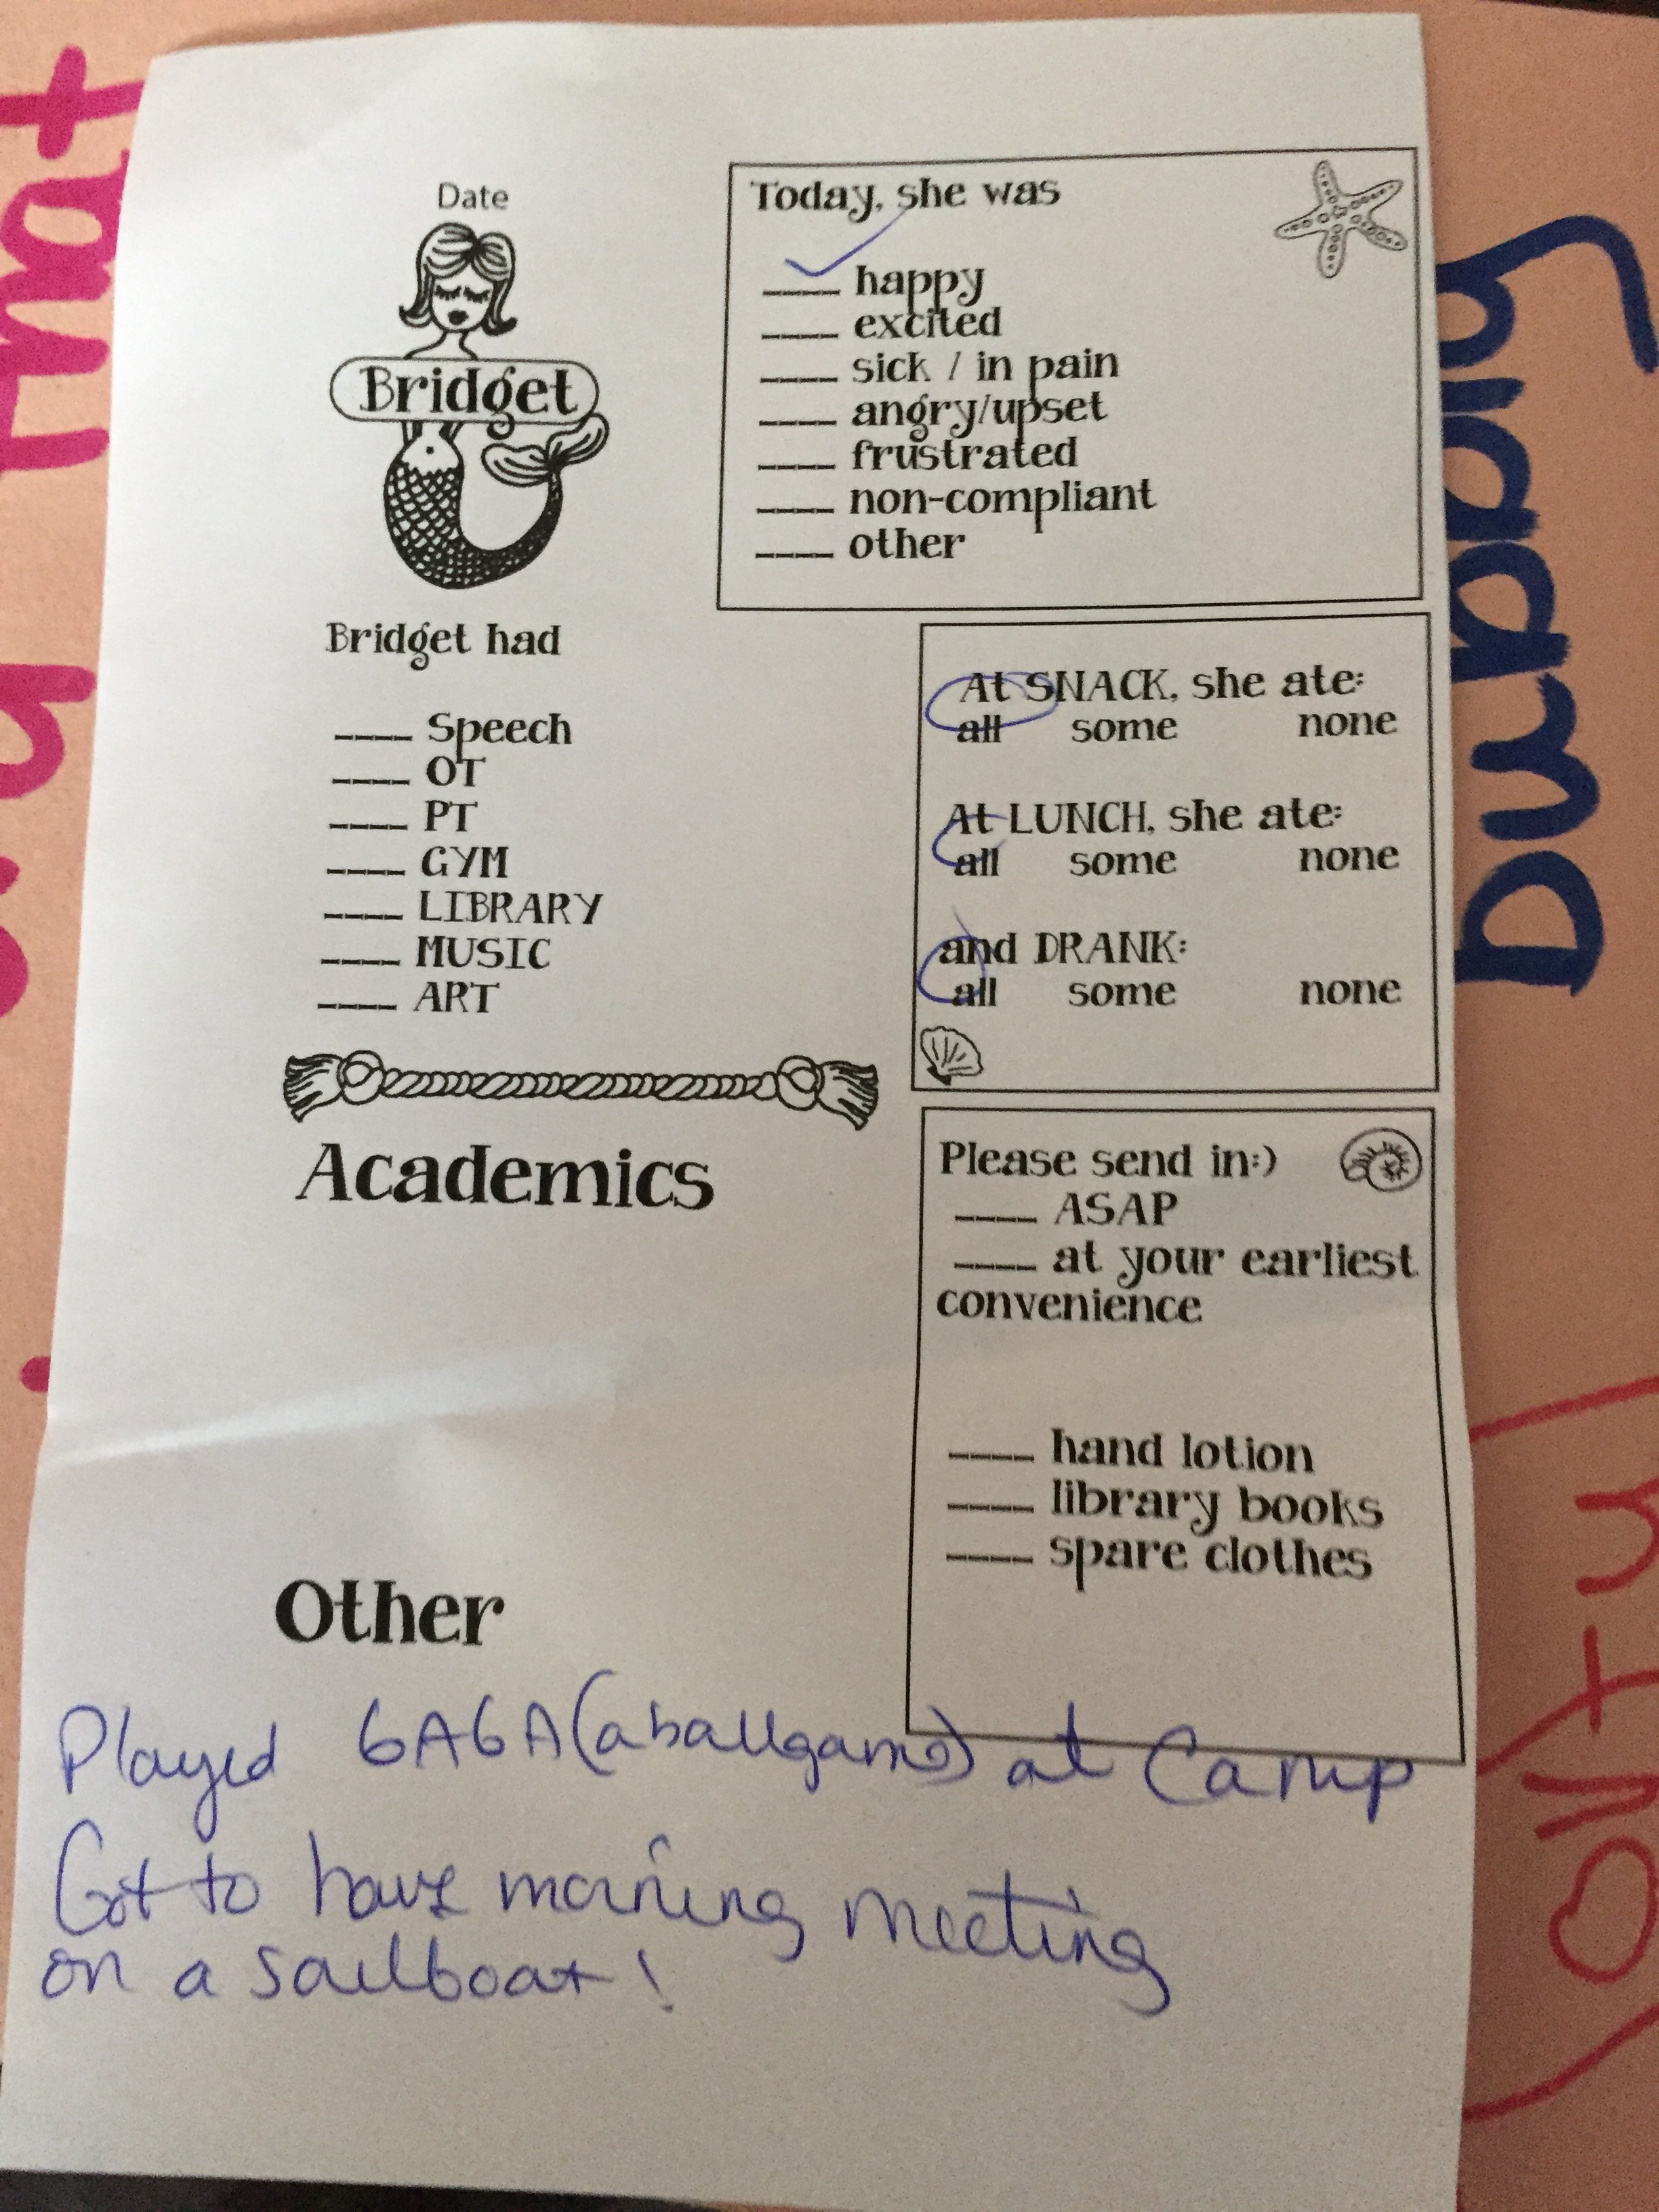 Date
Bridget
Today, she was
____ happy
____ excited
____ sick / in pain
____ angry/upset
____ frustrated
____ non-compliant
____ other
Bridget had
____ Speech
____ OT
____ PT
____ GYM
____ LIBRARY
____ MUSIC
____ ART
At SNACK, she ate:
all some none
At LUNCH, she ate:
all some none
and DRANK:
all some none
Academics
Please send in:)
____ ASAP
____ at your earliest
convenience
____ hand lotion
____ library books
____ spare clothes
Other
Played GAGA (a ballgame) at Camp
Got to have morning meeting
on a sailboat!
that